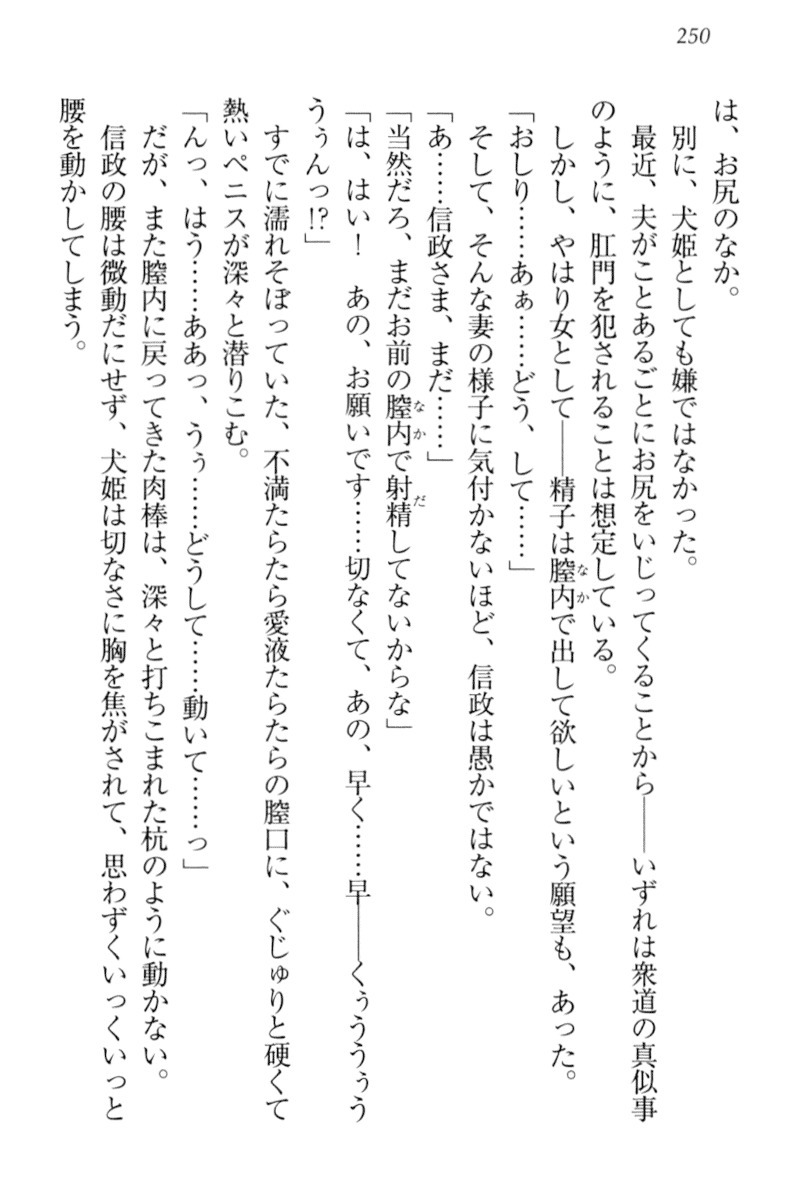 250
は、お尻のなか。
別に、犬姫としても嫌ではなかった。
最近、夫がことあるごとにお尻をいじってくることから――いずれは衆道の真似事
のように、肛門を犯されることは想定している。
しかし、やはり女として――精子は膣内で出して欲しいという願望も、あった。
なか
「おしり……あぁ……どう、して……」
そして、そんな妻の様子に気付かないほど、信政は愚かではない。
「あ……信政さま、まだ……」
「当然だろ、まだお前の膣内で射精してないからな」
なか
だ
「は、はい！　あの、お願いです……切なくて、あの、早く……早――くぅううぅう
うぅんっ!?」
すでに濡れそぼっていた、不満たらたら愛液たらたらの膣口に、ぐじゅりと硬くて
熱いペニスが深々と潜りこむ。
「んっ、はう……ああっ、うぅ……どうして……動いて……っ」
だが、また膣内に戻ってきた肉棒は、深々と打ちこまれた杭のように動かない。
信政の腰は微動だにせず、犬姫は切なさに胸を焦がされて、思わずくいっくいっと
腰を動かしてしまう。